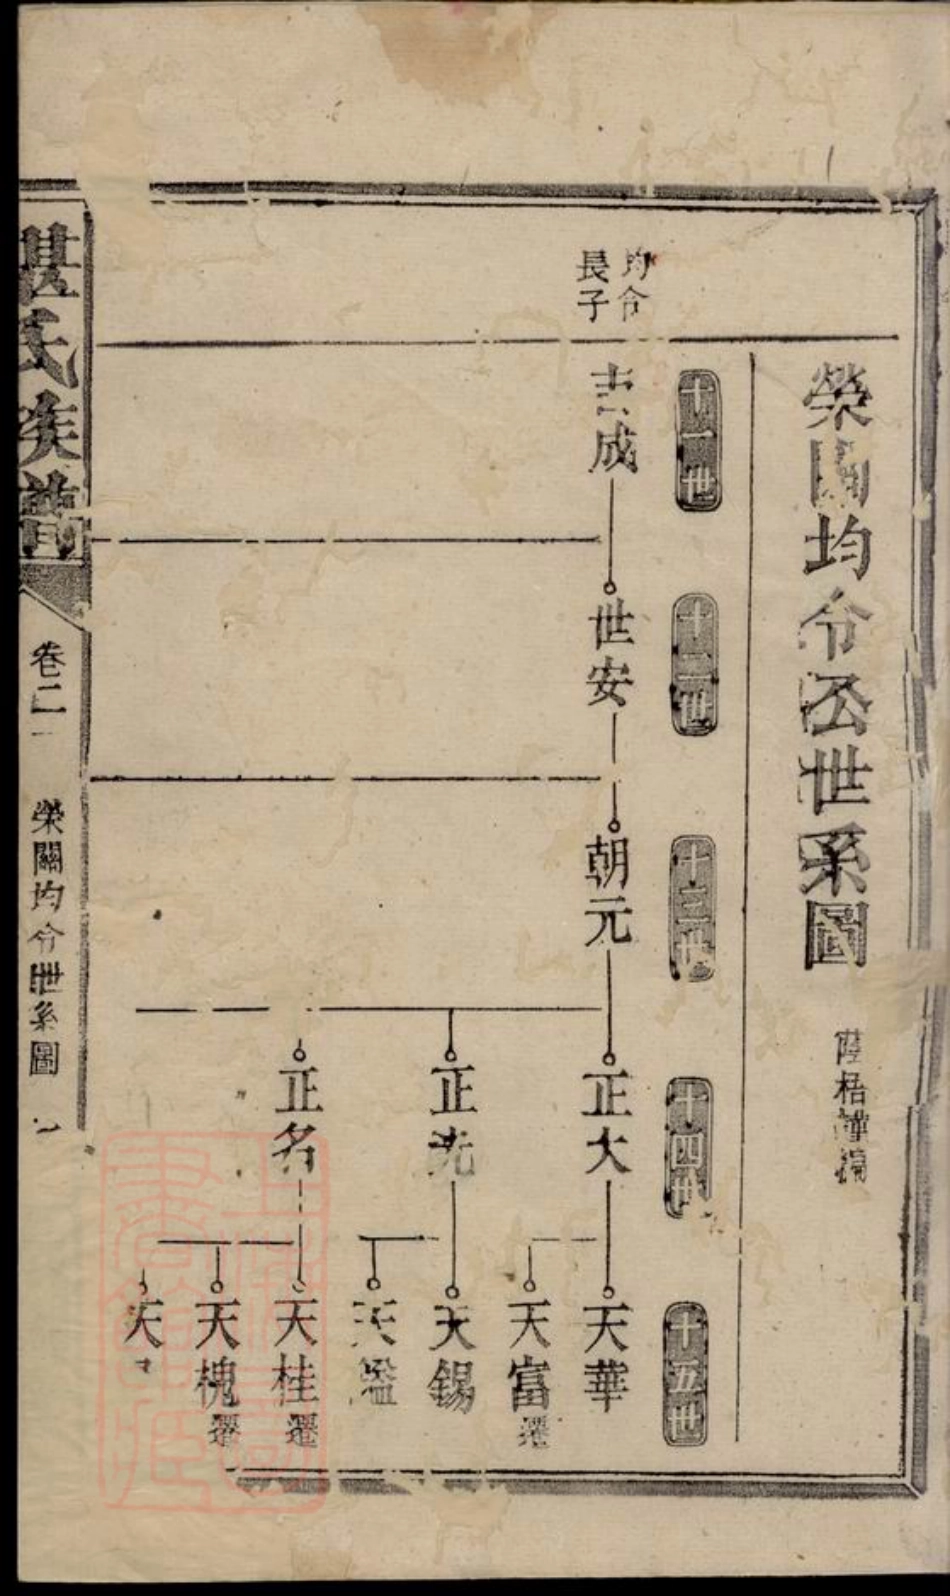 榮關均令公世系圖
十一世
十二世
十三世
十四世
十五世
均令
長子
成
世安
朝元
正大
正先
正名
天華
天富 遷
天錫
天鑑
天桂 遷
天槐 遷
天
湛氏族譜
卷二
榮關均令世系圖